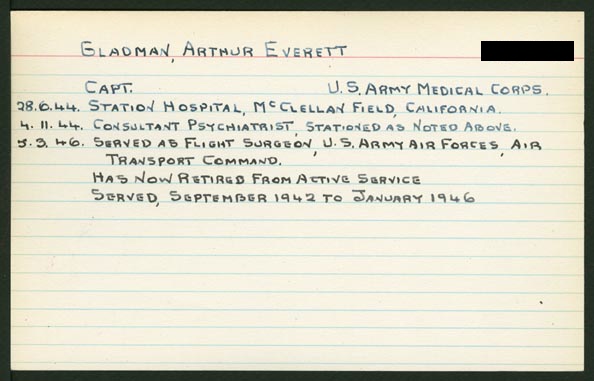 GLADMAN, ARTHUR EVERETT
CAPT. U.S. ARMY MEDICAL CORPS.
28.6.44. STATION HOSPITAL, McCLELLAN FIELD, CALIFORNIA.
4.11.44. CONSULTANT PSYCHIATRIST, STATIONED AS NOTED ABOVE.
5.3.46. SERVED AS FLIGHT SURGEON, U.S. ARMY AIR FORCES, AIR
TRANSPORT COMMAND.
HAS NOW RETIRED FROM ACTIVE SERVICE
SERVED, SEPTEMBER 1942 TO JANUARY 1946